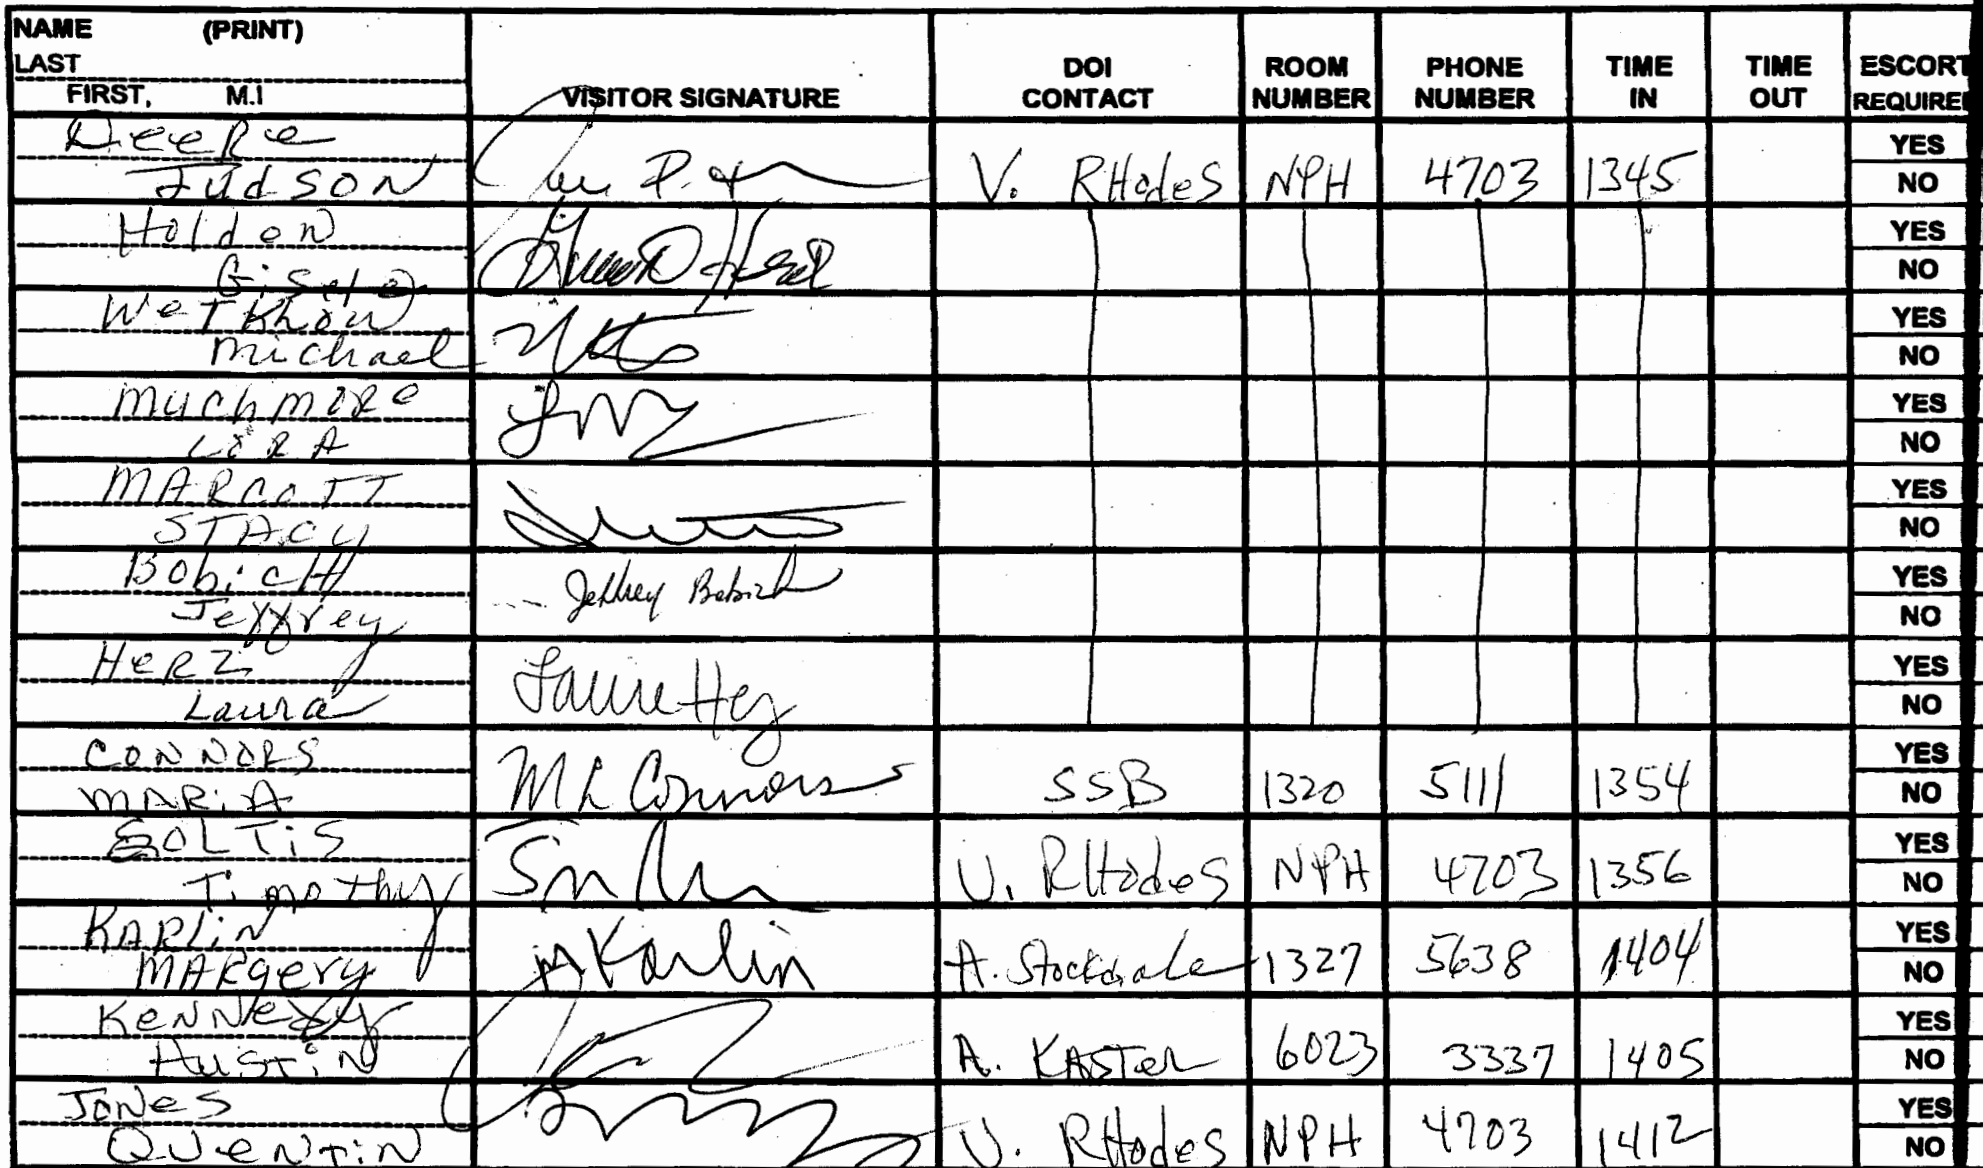 NAME (PRINT)
LAST
FIRST, M.I
VISITOR SIGNATURE
DOI CONTACT
ROOM NUMBER
PHONE NUMBER
TIME IN
TIME OUT
ESCORT REQUIRED
Deere
Judson
V. RHodes NPH 4703 1345
YES
NO
Holden
Gisela
YES
NO
Wetkhow
Michael
YES
NO
Muchmore
LORA
YES
NO
MARCOTT
STACY
YES
NO
BobicH
Jeffrey
Jeffrey Bobich
YES
NO
HeRZ
Laura
YES
NO
CONNORS
MARiA
ML Connors SSB 1320 5111 1354
YES
NO
SOLTiS
Timothy
V. RHodes NPH 4703 1356
YES
NO
KARLiN
MARgery
M Karlin A. Stockdale 1327 5638 1404
YES
NO
KeNNedy
AuSTiN
A. KASTer 6023 3337 1405
YES
NO
JoNeS
QueNTiN
V. RHodes NPH 4703 1412
YES
NO